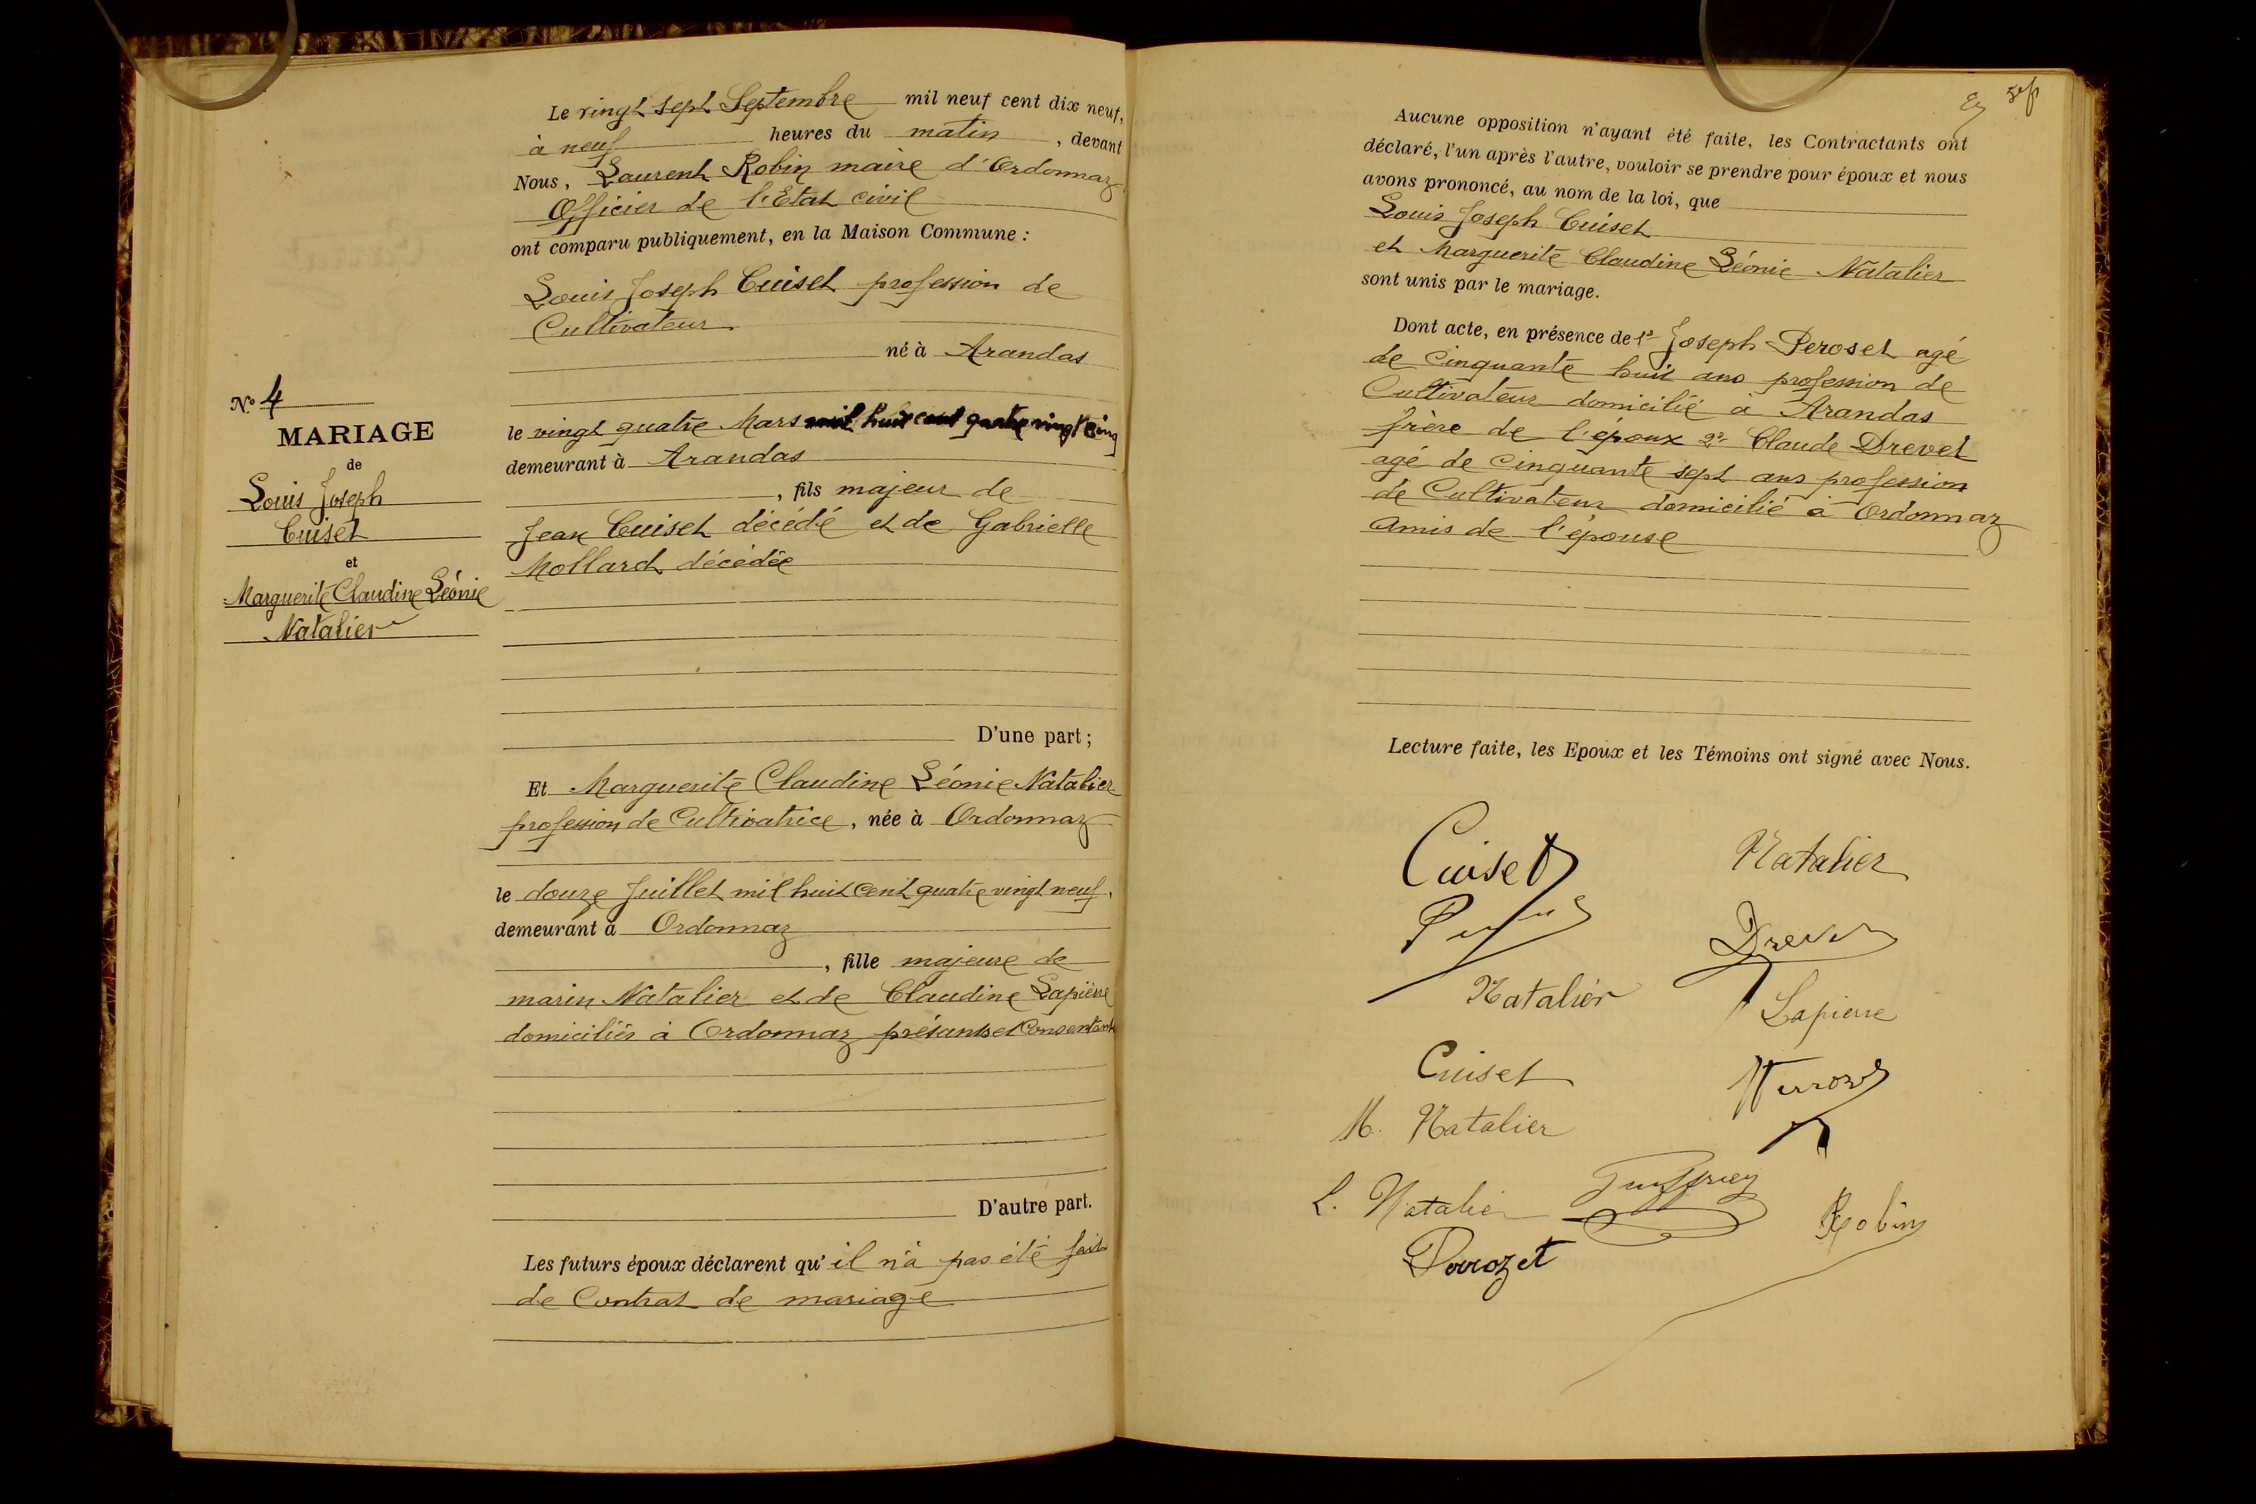 Le vingt sept Septembre mil neuf cent dix neuf,
à neuf heures du matin, devant
Nous, Laurent Robin maire d'Ordonnaz
Officier de l'Etat civil
ont comparu publiquement, en la Maison Commune :
Louis Joseph Cuiset profession de
Cultivateur
né à Arandas
le vingt quatre Mars mil huit cent quatre vingt cinq
demeurant à Arandas
, fils majeur de
Jean Cuiset décédé et de Gabrielle
Mollard décédée
D'une part ;
Et Marguerite Claudine Léonie Natalier
profession de Cultivatrice, née à Ordonnaz
le douze Juillet mil huit cent quatre vingt neuf,
demeurant à Ordonnaz
, fille majeure de
marin Natalier et de Claudine Lapierre
domiciliés à Ordonnaz présants et Consentants
D'autre part.
Les futurs époux déclarent qu'il n'a pas été fait
de Contrat de mariage
N° 4
MARIAGE
de
Louis Joseph
Cuiset
et
Marguerite Claudine Léonie
Natalier
Aucune opposition n'ayant été faite, les Contractants ont
déclaré, l'un après l'autre, vouloir se prendre pour époux et nous
avons prononcé, au nom de la loi, que
Louis Joseph Cuiset
et Marguerite Claudine Léonie Natalier
sont unis par le mariage.
Dont acte, en présence de 1° Joseph Peroset agé
de Cinquante huit ans profession de
Cultivateur domicilié à Arandas
frère de l'époux 2° Claude Drevet
agé de Cinquante sept ans profession
de Cultivateur domicilié à Ordonnaz
Amis de l'épouse
Lecture faite, les Epoux et les Témoins ont signé avec Nous.
Cuiset Natalier
Drevet
Natalier Lapierre
Cuiset
M. Natalier
L. Natalier Robin
Perrozet